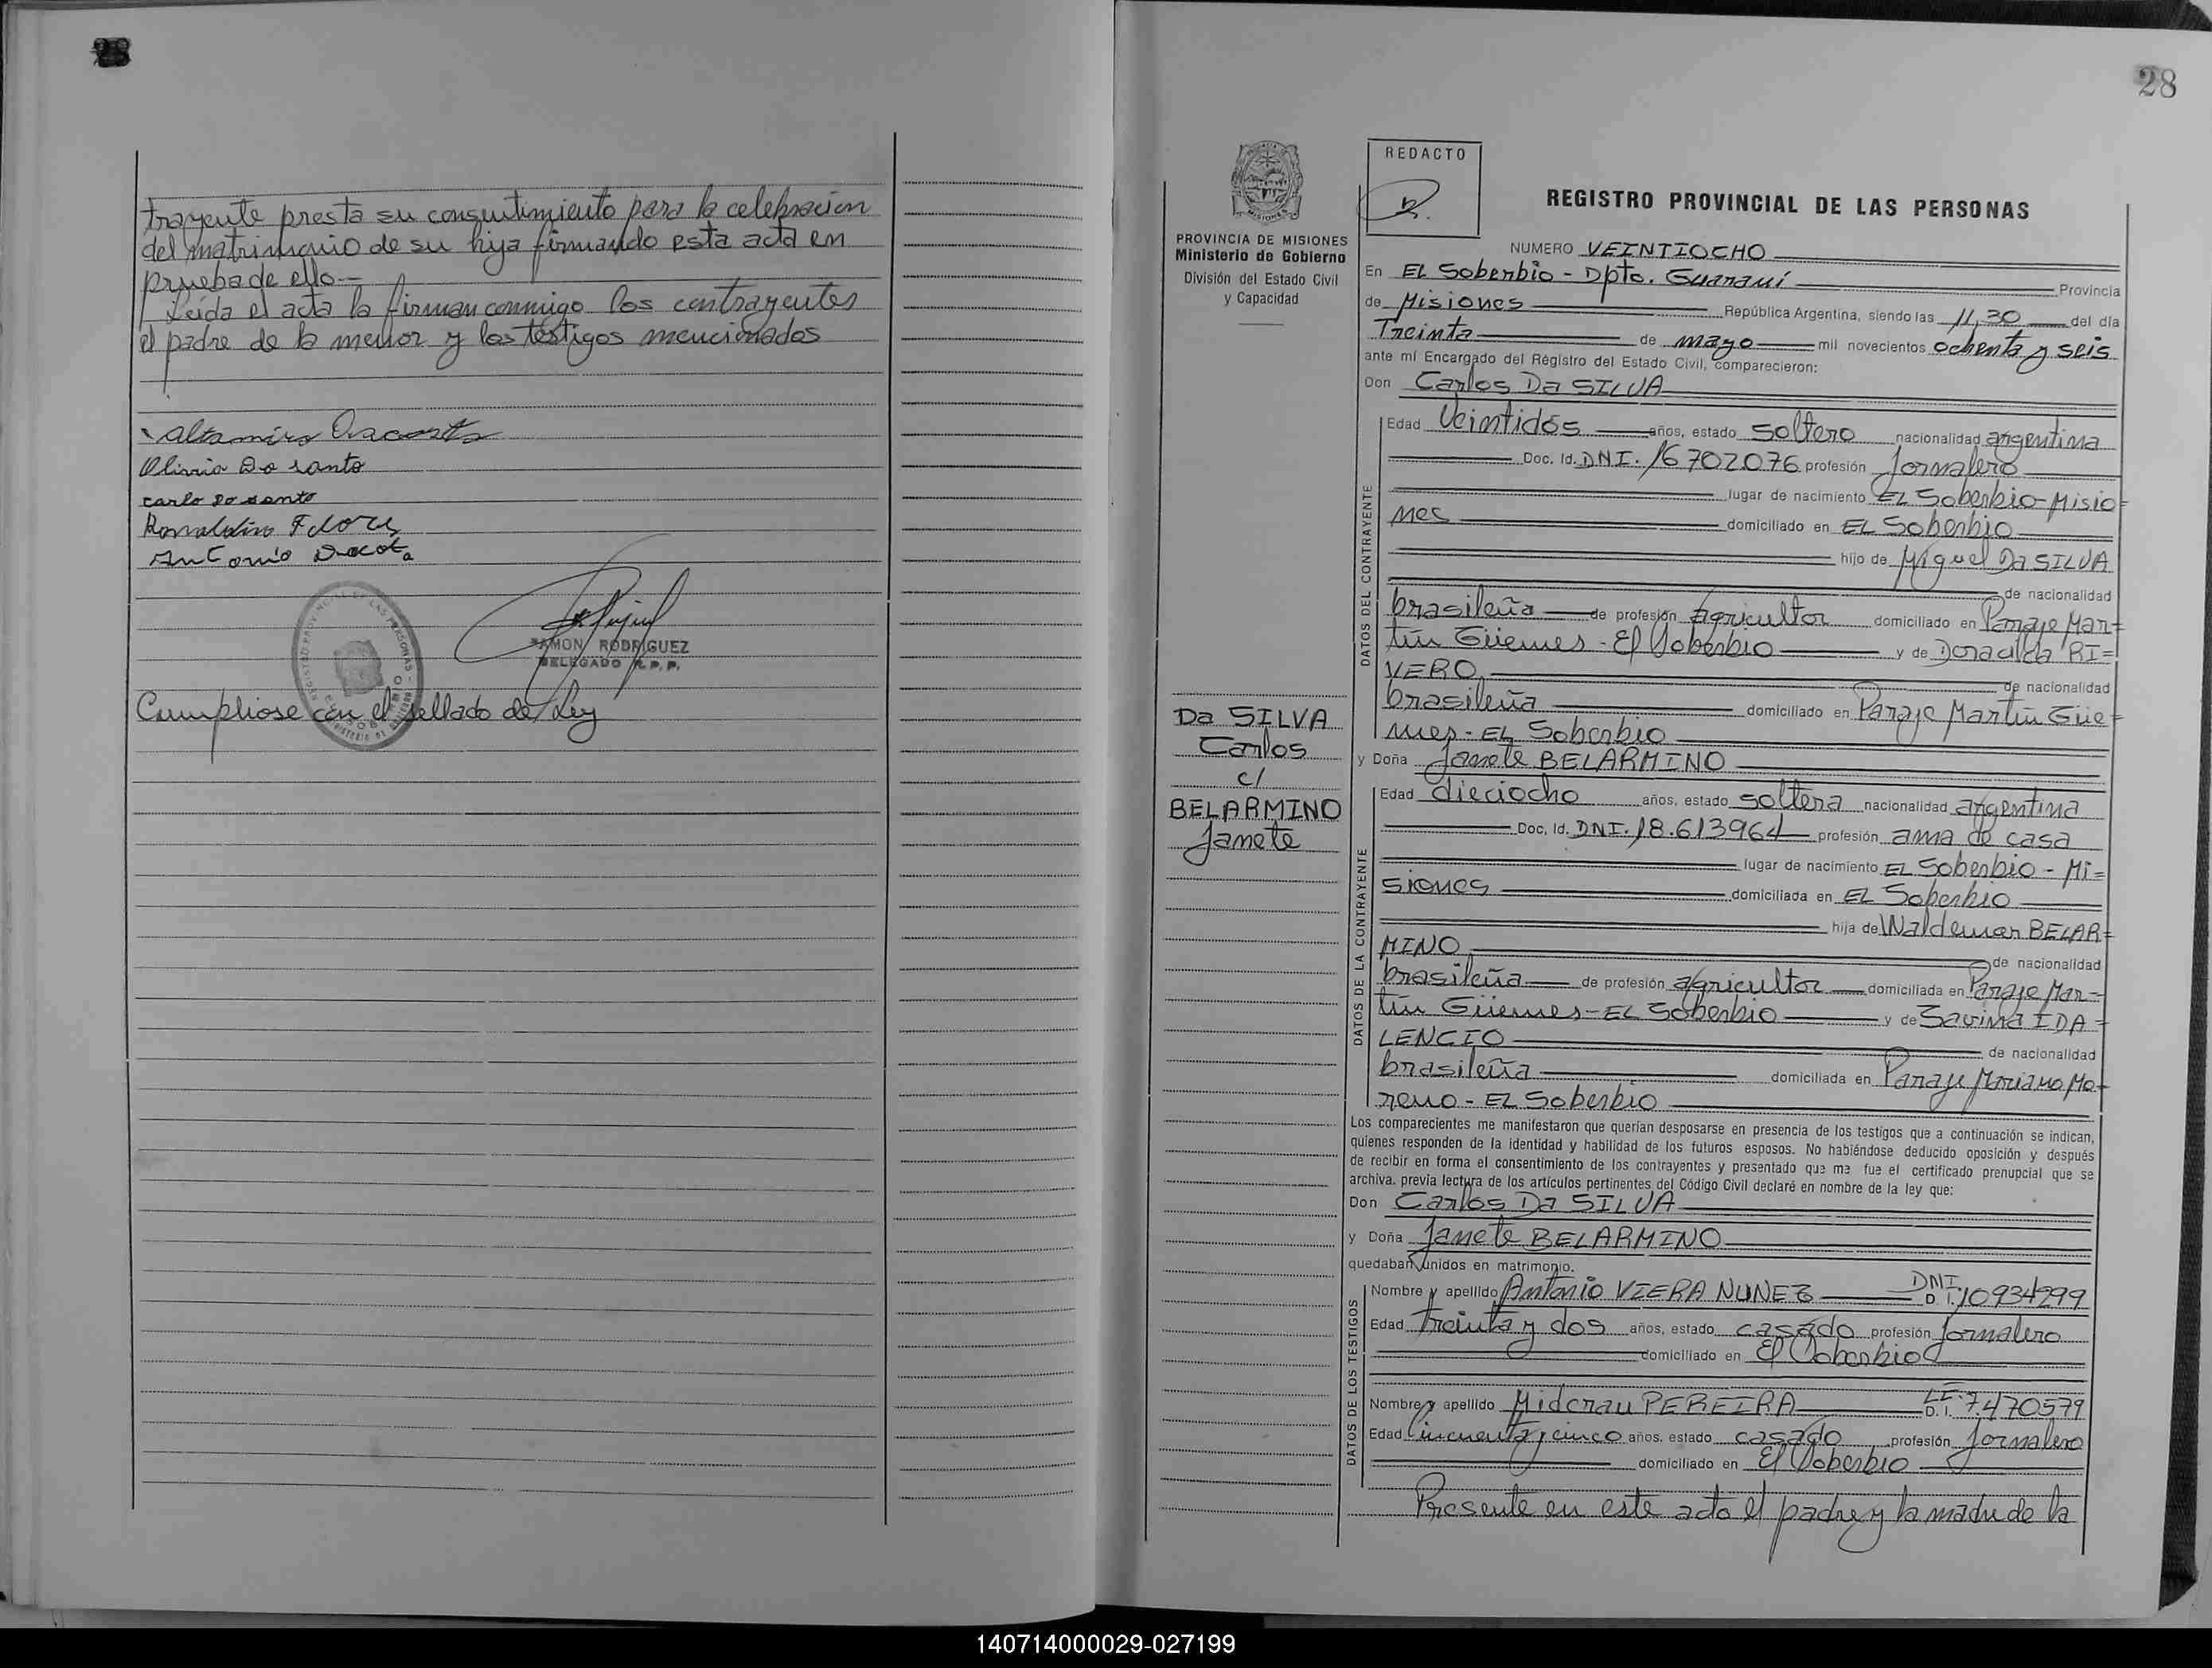 trayente presta su consentimiento para la celebracion
del matrimonio de su hija firmando esta acta en
prueba de ello.—
Leída el acta la firman conmigo los contrayentes
el padre de la menor y los testigos mencionados
Olivia Do santo
carlo do santo
Antonio
RAMON RODRIGUEZ
DELEGADO R.P.P.
Cumpliose con el sellado de Ley
28
PROVINCIA DE MISIONES
Ministerio de Gobierno
División del Estado Civil
y Capacidad
REDACTO
REGISTRO PROVINCIAL DE LAS PERSONAS
NUMERO VEINTIOCHO
En EL Soberbio - Dpto. Guaraní Provincia
de Misiones República Argentina, siendo las 11,30 del día
Treinta de mayo mil novecientos ochenta y seis
ante mí Encargado del Registro del Estado Civil, comparecieron:
Don Carlos Da SILVA
DATOS DEL CONTRAYENTE
Edad Veintidós años, estado soltero nacionalidad argentina
Doc. Id. DNI. 16702076 profesión Jornalero
lugar de nacimiento EL Soberbio-Misio=
nes domiciliado en EL Soberbio
hijo de Miguel Da SILVA
de nacionalidad
brasileña de profesión agricultor domiciliado en Paraje Mar=
tín Güemes - El Soberbio y de Doracilda RI=
VERO
de nacionalidad
brasileña domiciliado en Paraje Martín Güe=
mes - EL Soberbio
Da SILVA
Carlos
c/
BELARMINO
Janete
y Doña Janete BELARMINO
DATOS DE LA CONTRAYENTE
Edad dieciocho años, estado soltera nacionalidad argentina
Doc. Id. DNI. 18.613964 profesión ama de casa
lugar de nacimiento EL Soberbio - Mi=
siones domiciliada en EL Soberbio
hija de Waldemar BELAR=
MINO
de nacionalidad
brasileña de profesión agricultor domiciliada en Paraje Mar=
tín Güemes - EL Soberbio y de Savina IDA=
LENCIO
de nacionalidad
brasileña domiciliada en Paraje Mariano Mo=
reno - EL Soberbio
Los comparecientes me manifestaron que querían desposarse en presencia de los testigos que a continuación se indican,
quienes responden de la identidad y habilidad de los futuros esposos. No habiéndose deducido oposición y después
de recibir en forma el consentimiento de los contrayentes y presentado que me fue el certificado prenupcial que se
archiva, previa lectura de los artículos pertinentes del Código Civil declaré en nombre de la ley que:
Don Carlos Da SILVA
y Doña Janete BELARMINO
quedaban unidos en matrimonio.
DATOS DE LOS TESTIGOS
Nombre y apellido Antonio VIERA NUNEZ DNI D. I. 10934299
Edad treinta y dos años, estado casado profesión Jornalero
domiciliado en El Soberbio
Nombre y apellido PEREIRA L.E. D. I. 7.470579
Edad Cincuenta y cinco años, estado casado profesión Jornalero
domiciliado en El Soberbio
Presente en este acto el padre y la madre de la
140714000029-027199